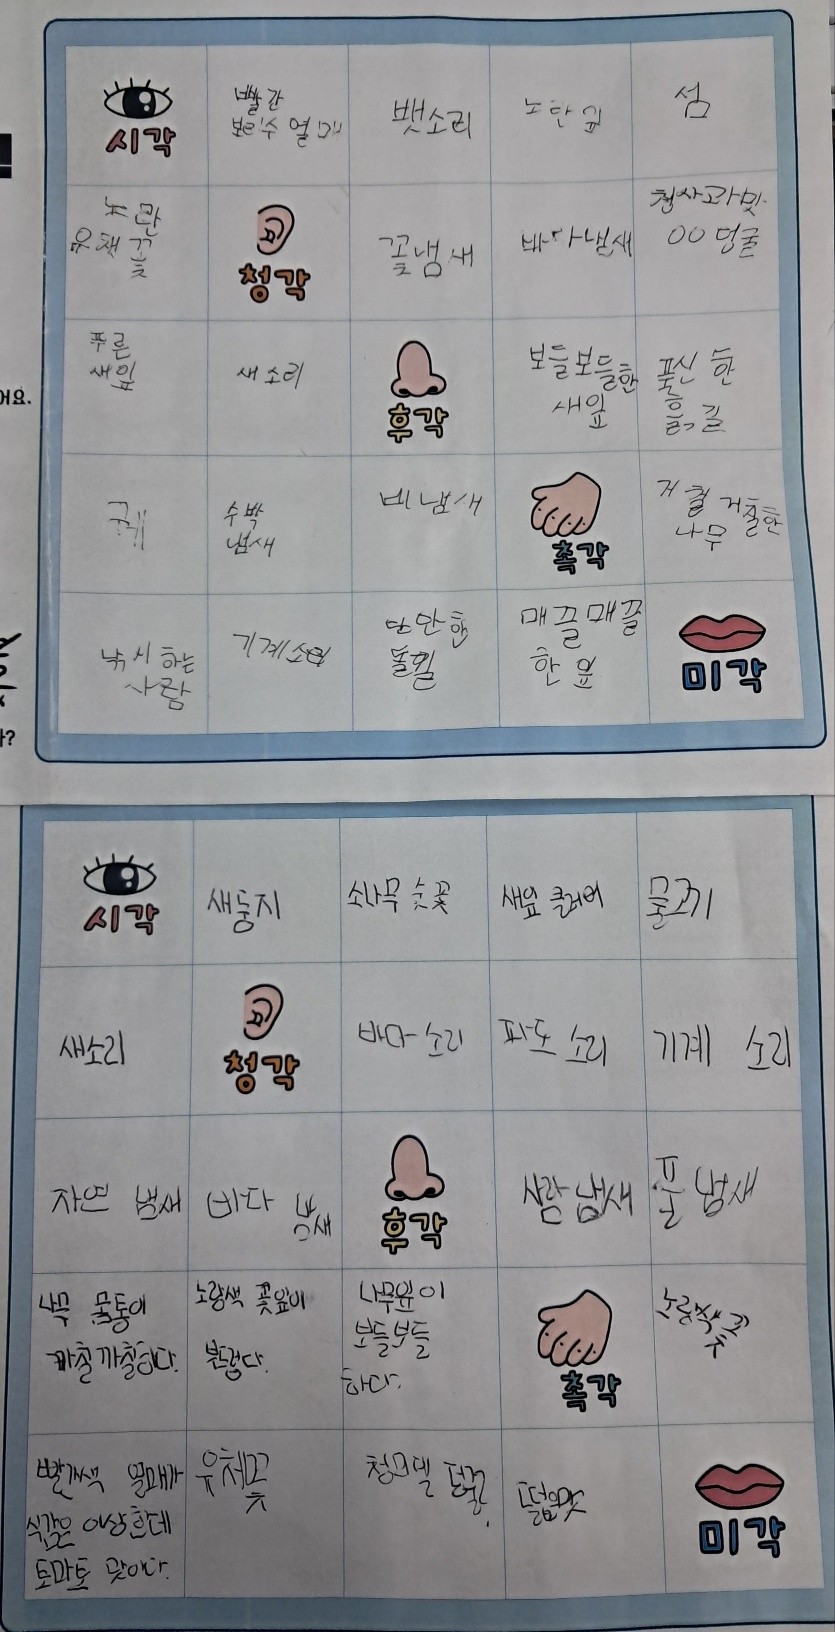 시각
빨간
보리수 열매
뱃소리
노란 잎
섬
노란
유채꽃
청각
꽃냄새
바다냄새
청사과맛
00 덩굴
푸른
새잎
새소리
후각
보들보들한
새잎
푹신한
흙길
어요.
수박
냄새
비냄새
촉각
거칠거칠한
나무
낚시하는
사람
기계소리
단단한
돌
매끌매끌
한 잎
미각
까?
시각
새둥지
소나무 숫꽃
새잎 클로버
물고기
새소리
청각
바다 소리
파도 소리
기계 소리
자연 냄새
바다 냄새
후각
사람 냄새
풀 냄새
나무 몸통이
까칠까칠하다.
노랑색 꽃잎이
부드럽다.
나무잎이
보들보들
하다.
촉각
노랑색 꽃
빨개색 열매가
식감은 이상한데
토마토 맛이다.
유체꽃
청미델 덩쿨.
떫은맛
미각